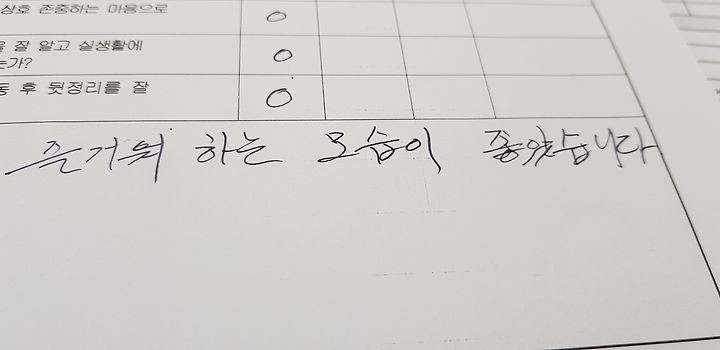 상호 존중하는 마음으로
잘 알고 실생활에
는가?
후 뒷정리를 잘
즐거워 하는 모습이 좋았습니다